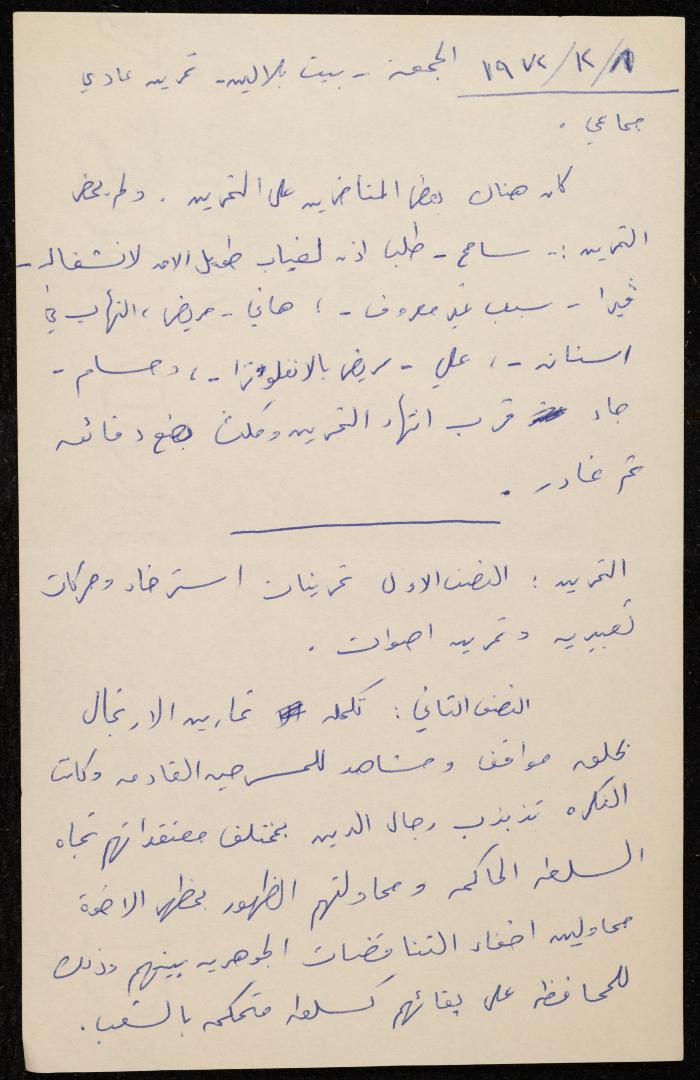 ١٩٧٢/٢/٨ الجمعة - بيت بلالين - تمرين عادي
جماعي .
كان هناك بعض المتأخرين على التمرين . ولم يحضر
التمرين :- سامح - طلب اذن لغياب طويل الامد لانشغاله -
ڤيرا - سبب غير معروف - ، هاني - مريض ، التهاب في
اسنانه - ، علي - مريض بالانفلونزا - ، وحسام -
جاء قرب انتهاء التمرين ومكث بضع دقائق
ثم غادر .
التمرين : النصف الاول تمرينات استرخاء وحركات
تعبيريه وتمرين اصوات .
النصف الثاني : تكملة تمارين الارتجال
بخلق مواقف ومشاهد للمسرحيه القادمه وكانت
الفكره تذبذب رجال الدين بمختلف معتقداتهم تجاه
السلطه الحاكمه ومحاولتهم الظهور بمظهر الاخوة
محاولين اخفاء التناقضات الجوهريه بينهم وذلك
للمحافظه على بقائهم كسلطه متحكمه بالشعب .